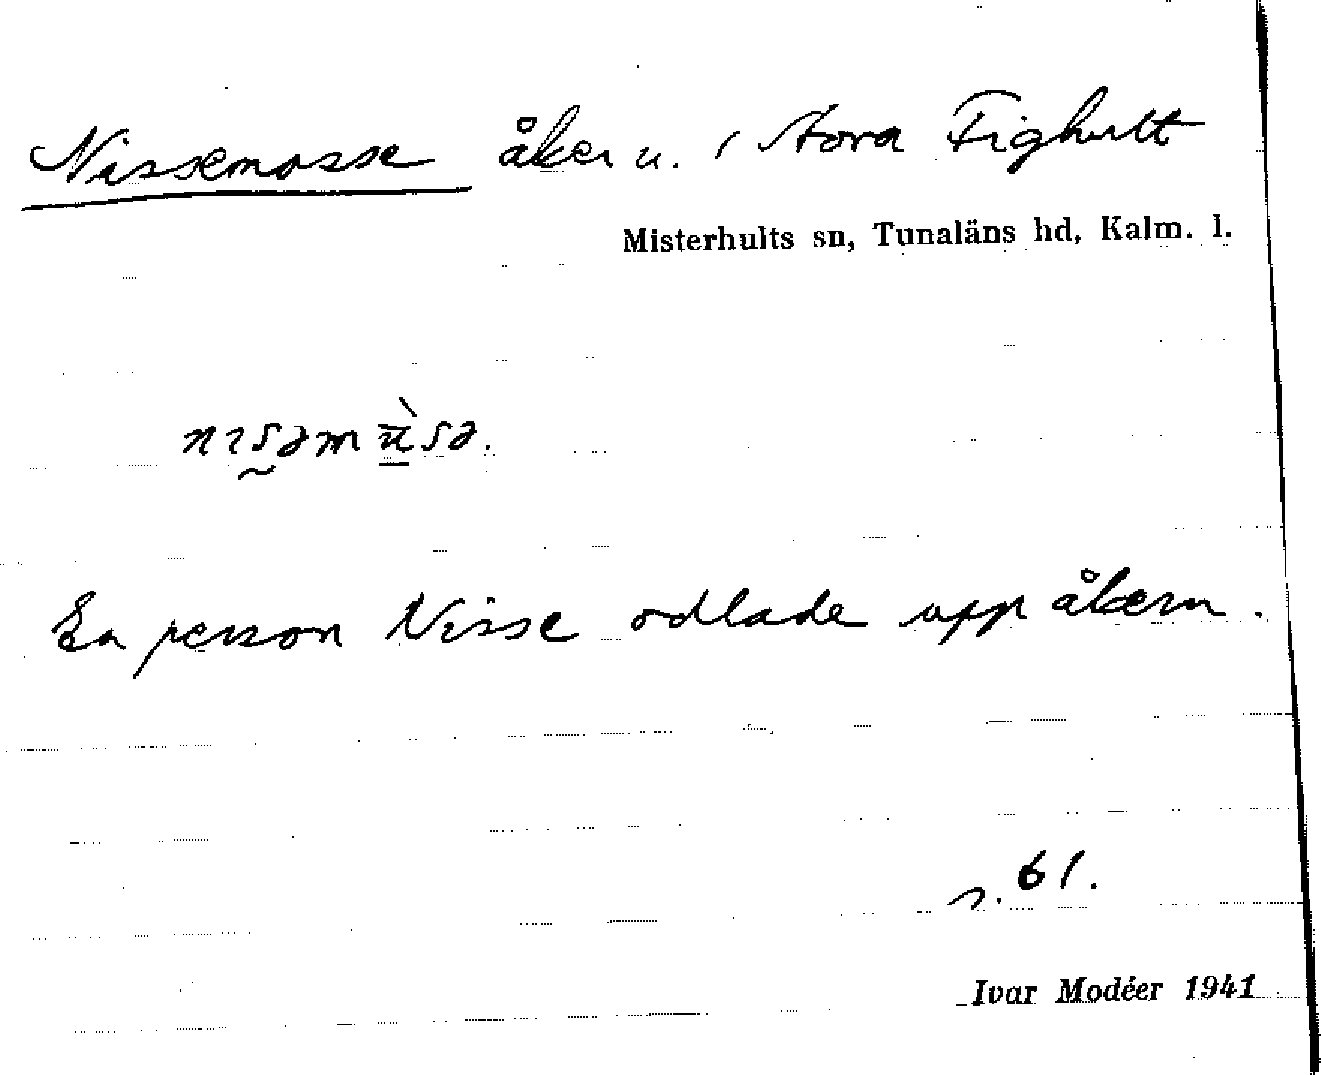 Nissemosse åker u. i Stora Fighult
Misterhults sn, Tunaläns hd, Kalm. l.
En person Nisse odlade upp åkern.
s. 61.
Ivar Modéer 1941